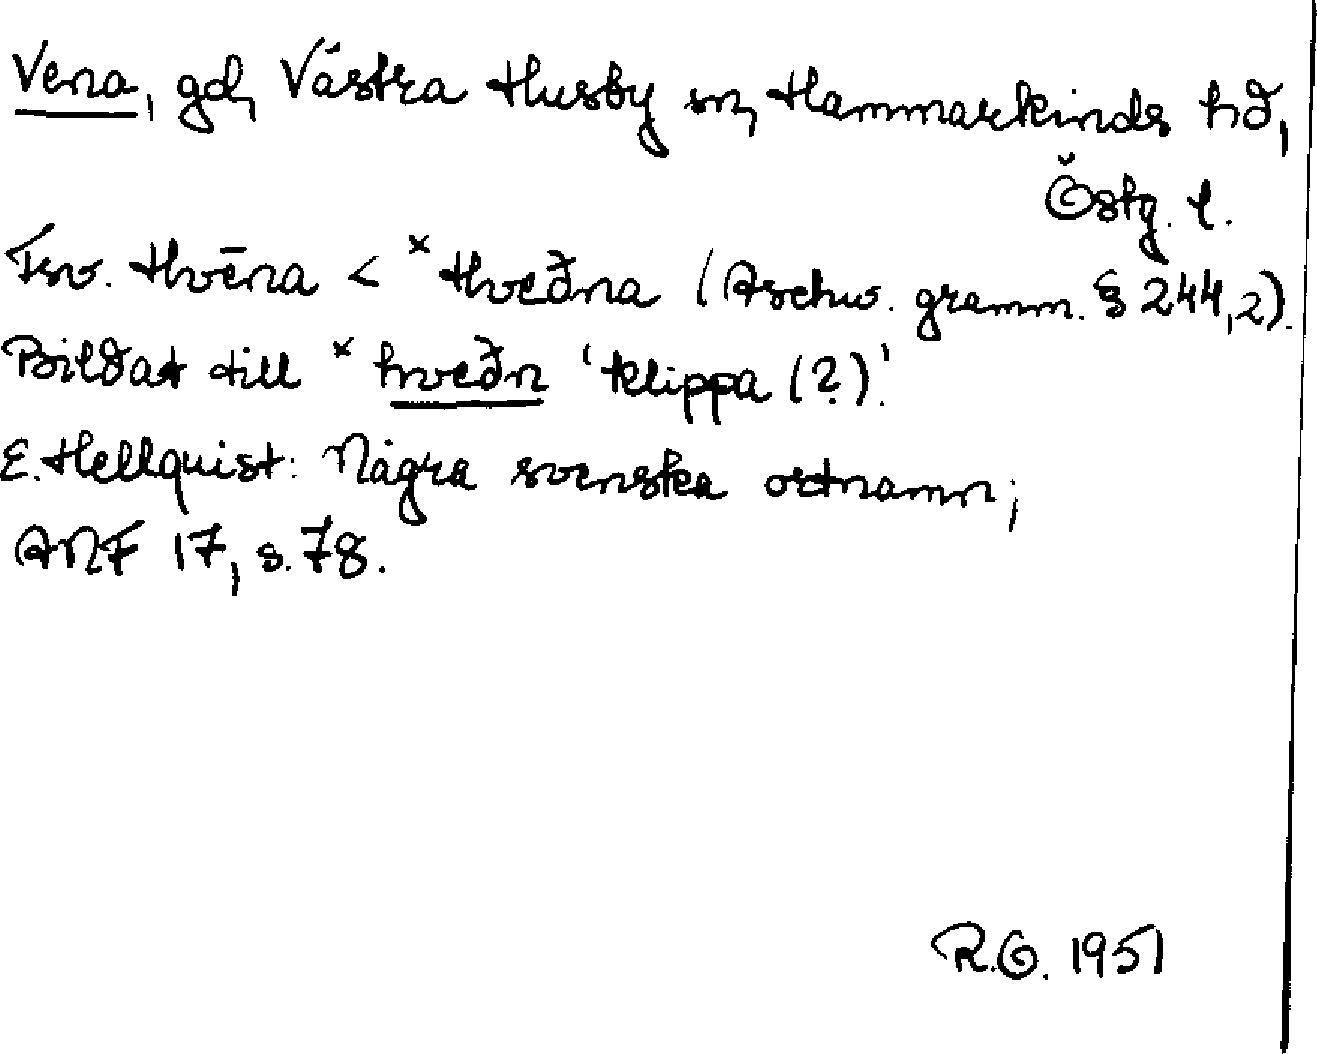 Vena, gd, Västra Husby sn, Hammarkinds hd,
Östg. l.
Fsv. Hvēna < ˣHveðna (Aschw. gramm. § 244,2).
Bildat till ˣhveðn 'klippa (?)'.
E. Hellquist: Några svenska ortnamn;
ANF 17, s. 78.
R.G. 1951